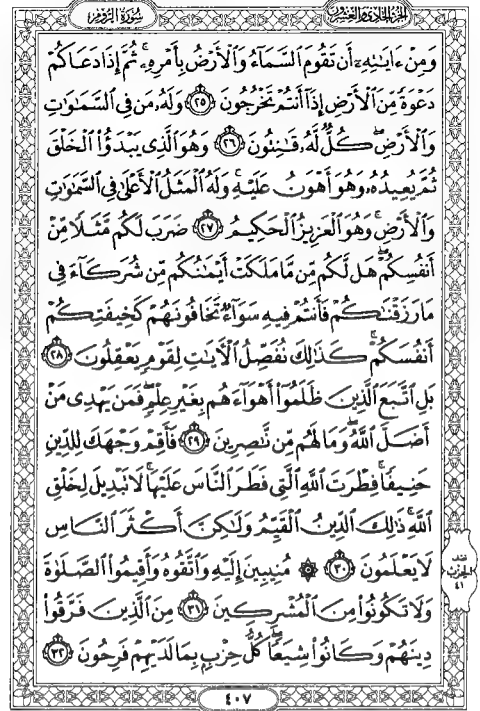 سُورَةُ الرُّومِ
الجُزْءُ الحَادِي وَالعِشْرُونَ
وَمِنْ ءَايَٰتِهِۦٓ أَن تَقُومَ ٱلسَّمَآءُ وَٱلْأَرْضُ بِأَمْرِهِۦ ۚ ثُمَّ إِذَا دَعَاكُمْ
دَعْوَةً مِّنَ ٱلْأَرْضِ إِذَآ أَنتُمْ تَخْرُجُونَ ٢٥ وَلَهُۥ مَن فِى ٱلسَّمَٰوَٰتِ
وَٱلْأَرْضِ ۖ كُلٌّ لَّهُۥ قَٰنِتُونَ ٢٦ وَهُوَ ٱلَّذِى يَبْدَؤُا۟ ٱلْخَلْقَ
ثُمَّ يُعِيدُهُۥ وَهُوَ أَهْوَنُ عَلَيْهِ ۚ وَلَهُ ٱلْمَثَلُ ٱلْأَعْلَىٰ فِى ٱلسَّمَٰوَٰتِ
وَٱلْأَرْضِ ۚ وَهُوَ ٱلْعَزِيزُ ٱلْحَكِيمُ ٢٧ ضَرَبَ لَكُم مَّثَلًا مِّنْ
أَنفُسِكُمْ ۖ هَل لَّكُم مِّن مَّا مَلَكَتْ أَيْمَٰنُكُم مِّن شُرَكَآءَ فِى
مَا رَزَقْنَٰكُمْ فَأَنتُمْ فِيهِ سَوَآءٌ تَخَافُونَهُمْ كَخِيفَتِكُمْ
أَنفُسَكُمْ ۚ كَذَٰلِكَ نُفَصِّلُ ٱلْءَايَٰتِ لِقَوْمٍ يَعْقِلُونَ ٢٨
بَلِ ٱتَّبَعَ ٱلَّذِينَ ظَلَمُوٓا۟ أَهْوَآءَهُم بِغَيْرِ عِلْمٍ ۖ فَمَن يَهْدِى مَنْ
أَضَلَّ ٱللَّهُ ۖ وَمَا لَهُم مِّن نَّٰصِرِينَ ٢٩ فَأَقِمْ وَجْهَكَ لِلدِّينِ
حَنِيفًا ۚ فِطْرَتَ ٱللَّهِ ٱلَّتِى فَطَرَ ٱلنَّاسَ عَلَيْهَا ۚ لَا تَبْدِيلَ لِخَلْقِ
ٱللَّهِ ۚ ذَٰلِكَ ٱلدِّينُ ٱلْقَيِّمُ وَلَٰكِنَّ أَكْثَرَ ٱلنَّاسِ
لَا يَعْلَمُونَ ٣٠ ۞ مُنِيبِينَ إِلَيْهِ وَٱتَّقُوهُ وَأَقِيمُوا۟ ٱلصَّلَوٰةَ
وَلَا تَكُونُوا۟ مِنَ ٱلْمُشْرِكِينَ ٣١ مِنَ ٱلَّذِينَ فَرَّقُوا۟
دِينَهُمْ وَكَانُوا۟ شِيَعًا ۖ كُلُّ حِزْبٍۭ بِمَا لَدَيْهِمْ فَرِحُونَ ٣٢
نصف
الحزب
٤١
٤٠٧